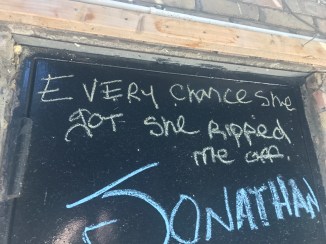 EVERY chance she
got she RippEd
me off.
JONATHAN